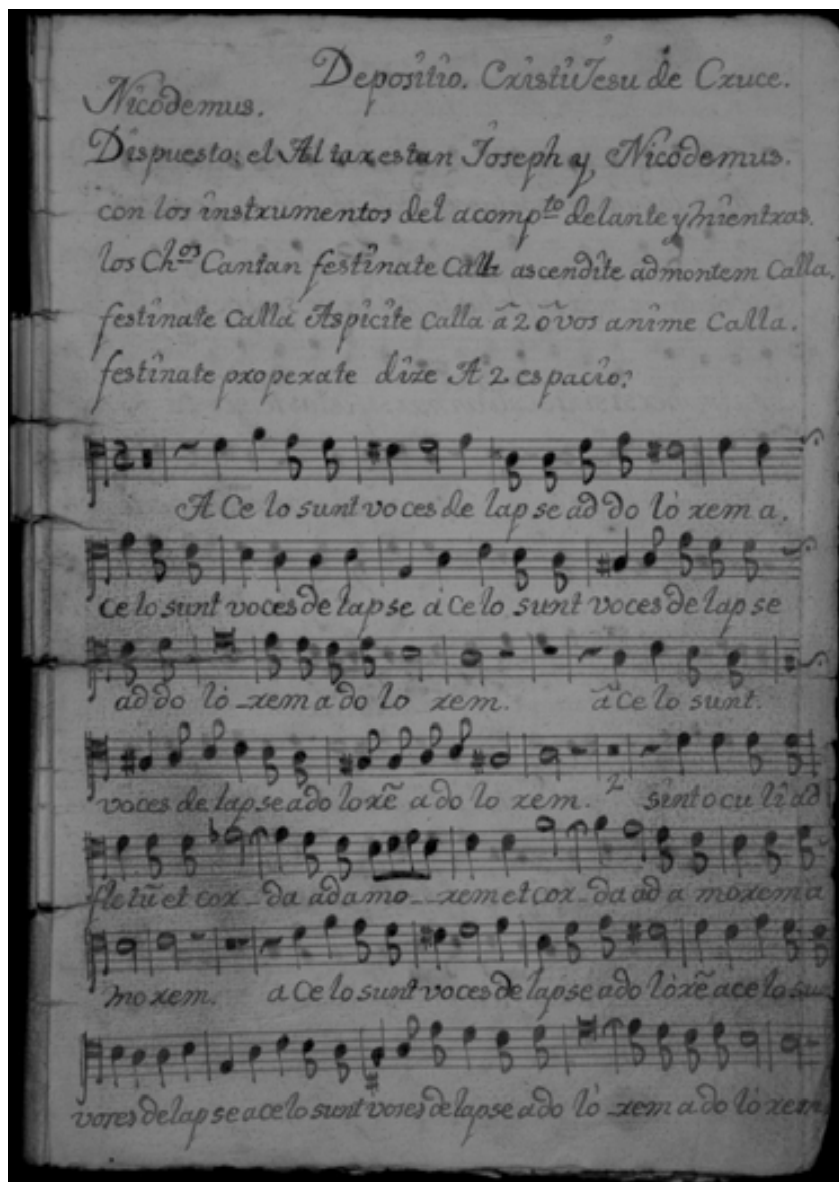 Depositio. Cristi Jesu de Cruce.
Nicodemus.
Dispuesto; el Altar estan Joseph y Nicodemus.
con los instrumentos del acompto delante y mientras.
los Chos Cantan festinate Calla ascendite ad montem Calla.
festinate Calla Aspicite Calla a 2 o vos anime Calla.
festinate properate dize A 2 espacio:
A Ce lo sunt vo ces de lap se ad do lo rem a.
ce lo sunt voces de lap se a Ce lo sunt voces de lap se
ad do lo - rem a do lo rem. a Ce lo sunt.
voces de lap se a do lo rẽ a do lo rem. 2 sint o cu li ad
fle tũ et cor - da ad a mo - rem et cor - da ad a morem a
mo rem. a Ce lo sunt voces de lap se a do lo rẽ a ce lo su
vozes de lap se a ce lo sunt vozes de lap se a do lo - rem a do lo rem